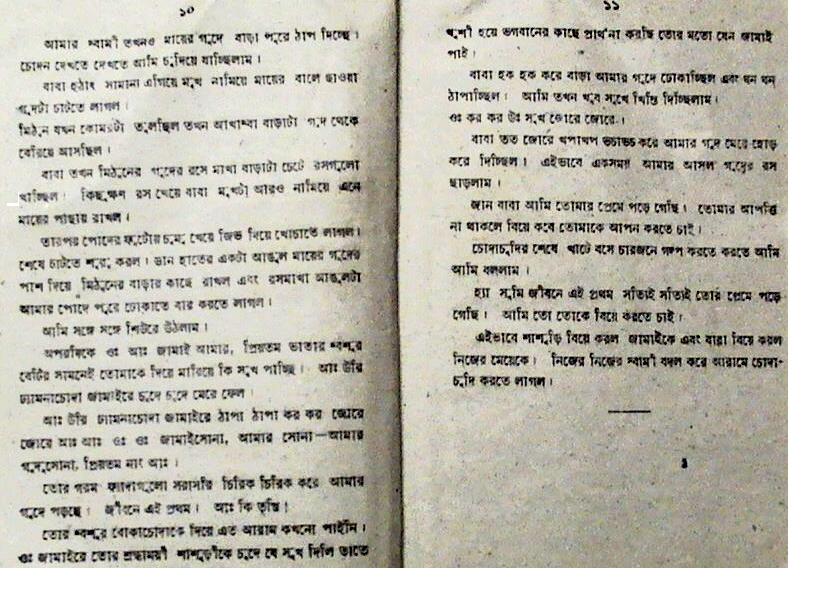 ১০
আমার স্বামী তখনও মায়ের গুদে বাড়া পুরে ঠাপ দিচ্ছে।
চোদন দেখতে দেখতে আমি চুদিয়ে যাচ্ছিলাম।
বাবা হঠাৎ সামান্য এগিয়ে মুখ নামিয়ে মায়ের বালে ছাওয়া
গুদটা চাটতে লাগল।
মিঠুন যখন কোমরটা তুলছিল তখন আখাম্বা বাড়াটা গুদ থেকে
বেরিয়ে আসছিল।
বাবা তখন মিঠুনের গুদের রসে মাখা বাড়াটা চেটে রসগুলো
খাচ্ছিল। কিছুক্ষণ রস খেয়ে বাবা মুখটা আরও নামিয়ে এনে
মায়ের পাছায় রাখল।
তারপর পোদের ফুটোয় চুমু খেয়ে জিভ দিয়ে খোচাতে লাগল।
শেষে চাটতে শুরু করল। ডান হাতের একটা আঙুল মায়ের গুদের
পাশ দিয়ে মিঠুনের বাড়ার কাছে রাখল এবং রসমাখা আঙুলটা
আমার পোদে পুরে ঢোকাতে বার করতে লাগল।
আমি সঙ্গে সঙ্গে শিউরে উঠলাম।
অপরদিকে ওঃ আঃ জামাই আমার, প্রিয়তম ভাতার শ্বশুর
বেটির সামনেই তোমাকে দিয়ে মারিয়ে কি সুখ পাচ্ছি। আঃ উরি
ঢ্যামনাচোদা জামাইরে চুদে চুদে মেরে ফেল।
আঃ উরি ঢ্যামনাচোদা জামাইরে ঠাপা ঠাপা কর কর জোরে
জোরে আঃ আঃ ওঃ ওঃ জামাইসোনা, আমার সোনা—আমার
গুদুসোনা, প্রিয়তম নাং আঃ।
তোর গরম ফ্যাদাগুলো সরাসরি চিরিক চিরিক করে আমার
গুদে পড়ছে। জীবনে এই প্রথম। আঃ কি তৃপ্তি!
তোর শ্বশুর বোকাচোদাকে দিয়ে এত আরাম কখনো পাইনি।
ওঃ জামাইরে তোর শ্রদ্ধাময়ী শাশুড়ীকে চুদে যে সুখ দিলি তাতে
১১
খুশী হয়ে ভগবানের কাছে প্রার্থনা করছি তোর মতো যেন জামাই
পাই।
বাবা হক হক করে বাড়া আমার গুদে ঢোকাচ্ছিল এবং ঘন ঘন
ঠাপাচ্ছিল। আমি তখন খুব সুখে খিস্তি দিচ্ছিলাম।
ওঃ কর কর উঃ সুখ জোরে জোরে।
বাবা তত জোরে খপাখপ ভচাভচ করে আমার গুদ মেরে হোড়
করে দিচ্ছিল। এইভাবে একসময় আমার আসল গুদের রস
ছাড়লাম।
জান বাবা আমি তোমার প্রেমে পড়ে গেছি। তোমার আপত্তি
না থাকলে বিয়ে কবে তোমাকে আপন করতে চাই।
চোদাচুদির শেষে খাটে বসে চারজনে গল্প করতে করতে আমি
আমি বললাম।
হ্যা সুমি জীবনে এই প্রথম সত্যিই সত্যিই তোর প্রেমে পড়ে
গেছি। আমি তো তোকে বিয়ে করতে চাই।
এইভাবে শাশুড়ি বিয়ে করল জামাইকে এবং বাবা বিয়ে করল
নিজের মেয়েকে। নিজের নিজের স্বামী বদল করে আরামে চোদা-
চুদি করতে লাগল।